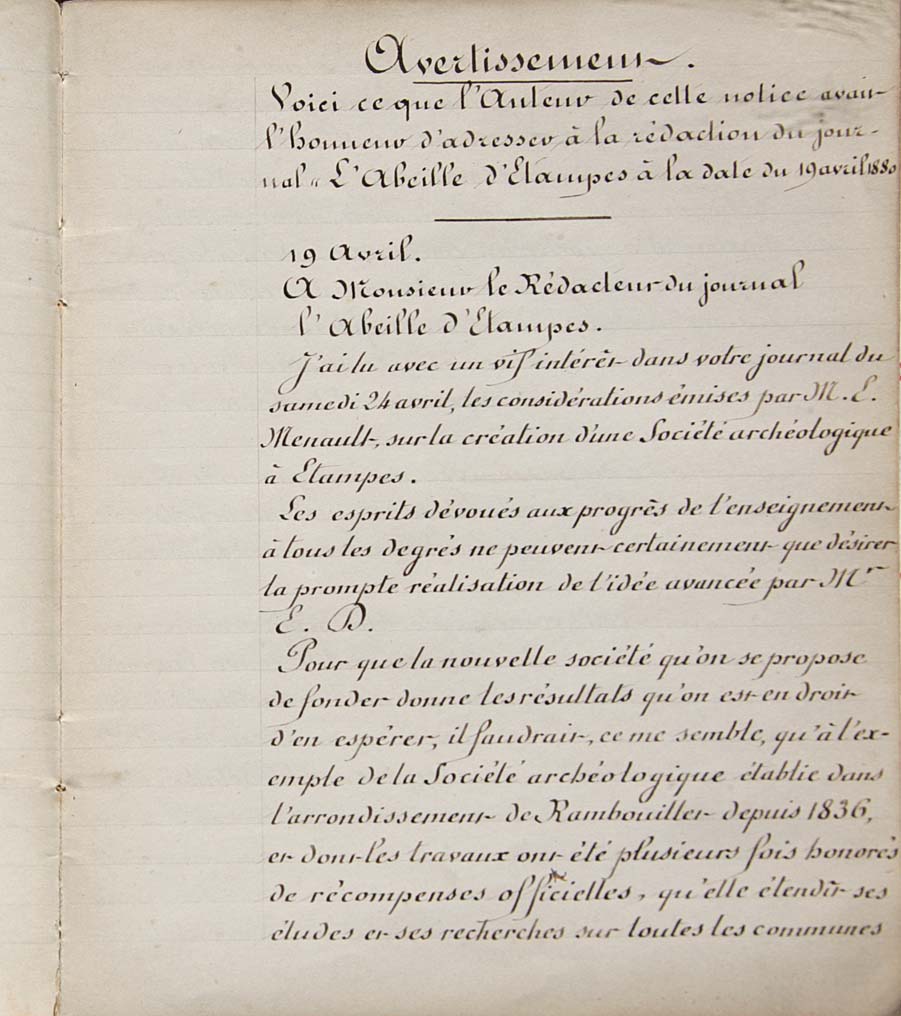 Avertissement.
Voici ce que l'Auteur de cette notice avait
l'honneur d'adresser à la rédaction du jour-
nal " L'Abeille d'Etampes à la date du 19 avril 1880
19 Avril.
A Monsieur le Rédacteur du journal
l'Abeille d'Etampes.
J'ai lu avec un vif intérêt dans votre journal du
samedi 24 avril, les considérations émises par M. E.
Menault, sur la création d'une Société archéologique
à Etampes.
Les esprits dévoués aux progrès de l'enseignement
à tous les degrés ne peuvent certainement que désirer
la prompte réalisation de l'idée avancée par Mr
E. D.
Pour que la nouvelle société qu'on se propose
de fonder donne les résultats qu'on est en droit
d'en espérer, il faudrait, ce me semble, qu'à l'ex-
emple de la Société archéologique établie dans
l'arrondissement de Rambouillet depuis 1836,
et dont les travaux ont été plusieurs fois honorés
de récompenses officielles, qu'elle étendît ses
études et ses recherches sur toutes les communes